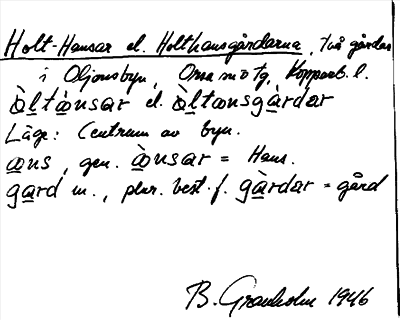 Holt-Hansar el. Holthansgårdarna, två gårdar
i Oljonsbyn, Orsa sn o tg, Kopparb. l.
àltànsar el. àltansgàrdar
Läge: Centrum av byn.
ans, gen. ànsar = Hans.
gard m., plur. best. f. gàrdar = gård
B. Granholm 1946